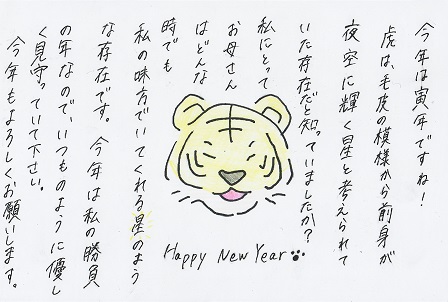 今年は寅年ですね!
虎は、毛皮の模様から前身が
夜空に輝く星と考えられて
いた存在だと知っていましたか?
私にとって
お母さん
はどんな
時でも
私の味方でいてくれる星のよう
な存在です。 今年は私の勝負
の年なので、いつものように優し
く見守っていて下さい。
今年もよろしくお願いします。
Happy New Year